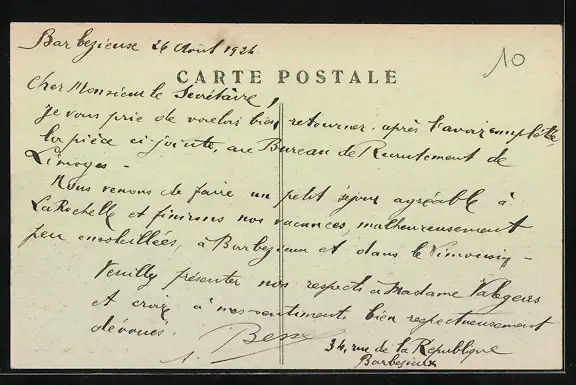 Barbezieux 26 Août 1924
10
CARTE POSTALE
Cher Monsieur le Secrétaire,
Je vous prie de vouloir bien retourner, après l'avoir complétée
la pièce ci-jointe, au Bureau de Recrutement de
Limoges -
Nous venons de faire un petit séjour agréable à
La Rochelle et finirons nos vacances, malheureusement
peu ensoleillées, à Barbezieux et dans le Limousin -
Veuillez présenter nos respects à Madame
et croire à nos sentiments bien respectueusement
dévoués.
Besse
34, rue de la République
Barbezieux